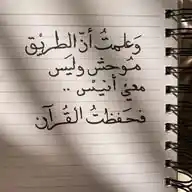 وَعلمتُ أنّ الطريْق
مُوحش وليس
معيْ أنيْس ..
فحَفظتُ القُرآن